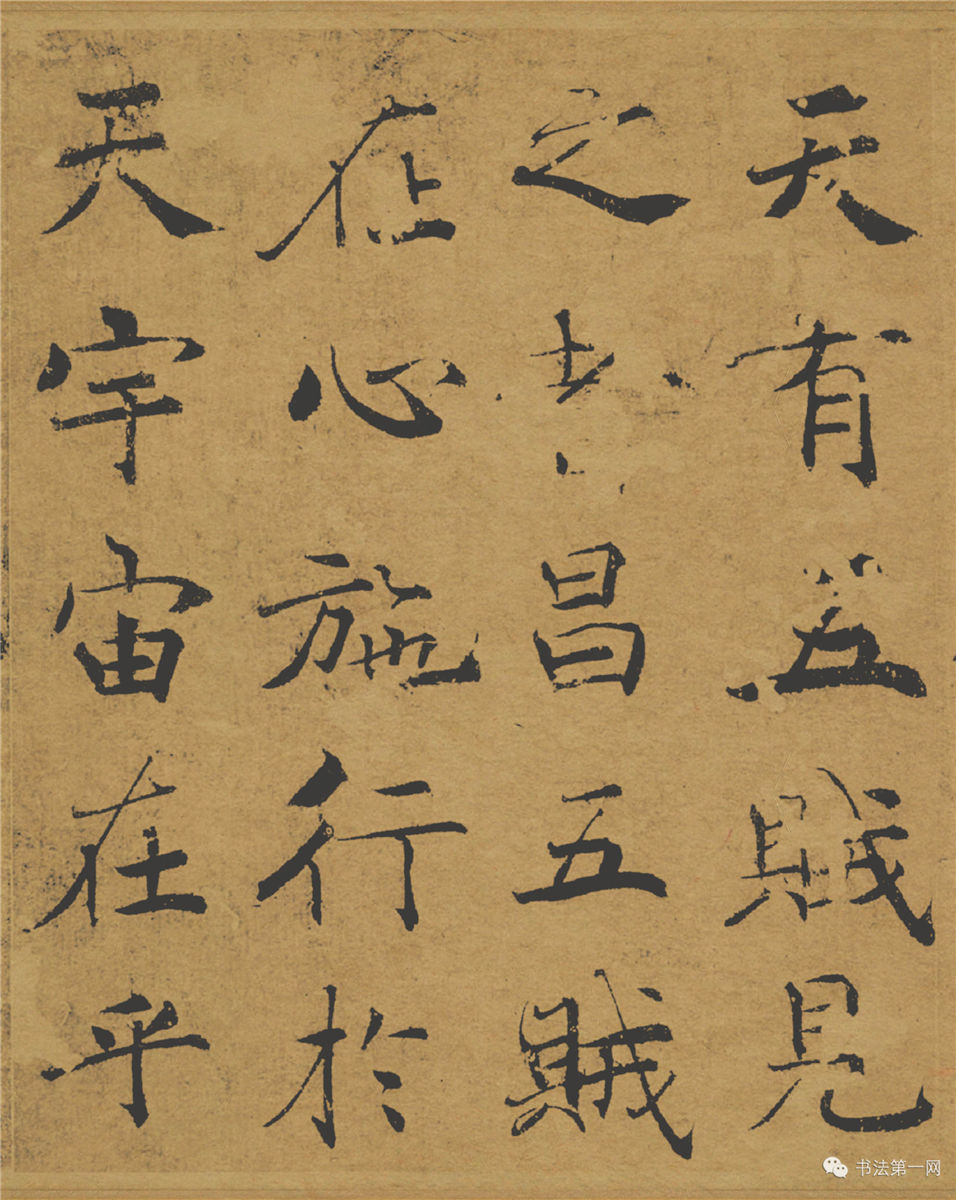 天有五賊見
之者昌五賊
在心施行於
天宇宙在乎
书法第一网